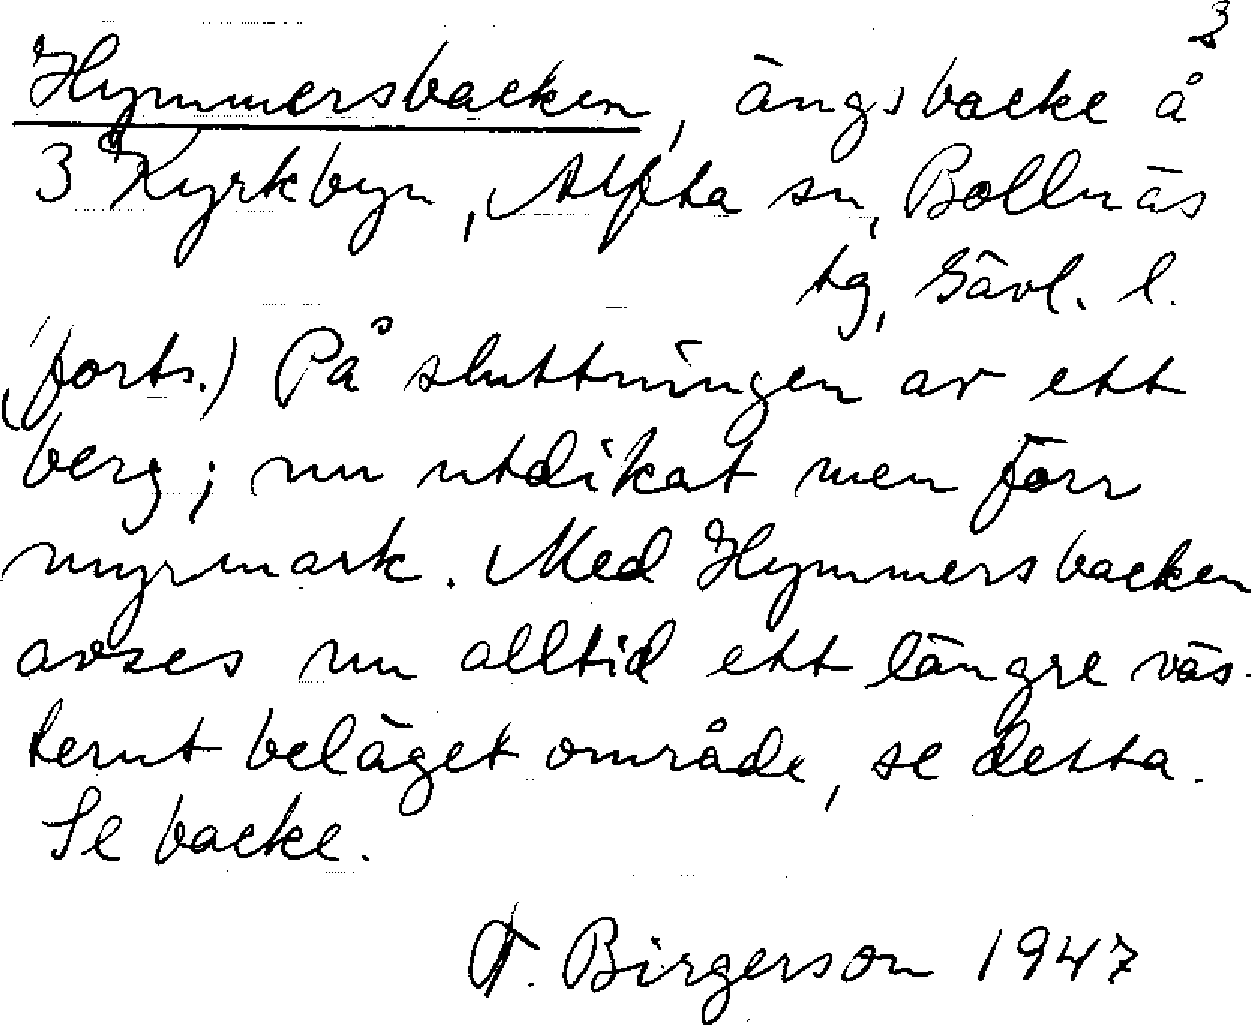 3
Hymmersbacken, ängsbacke å
3 Kyrkbyn, Alfta sn, Bollnäs
tg, Gävl. l.
(forts.) På sluttningen av ett
berg; nu utdikat men förr
myrmark. Med Hymmersbacken
avses nu alltid ett längre väs-
terut beläget område, se detta.
Se backe.
T. Birgerson 1947